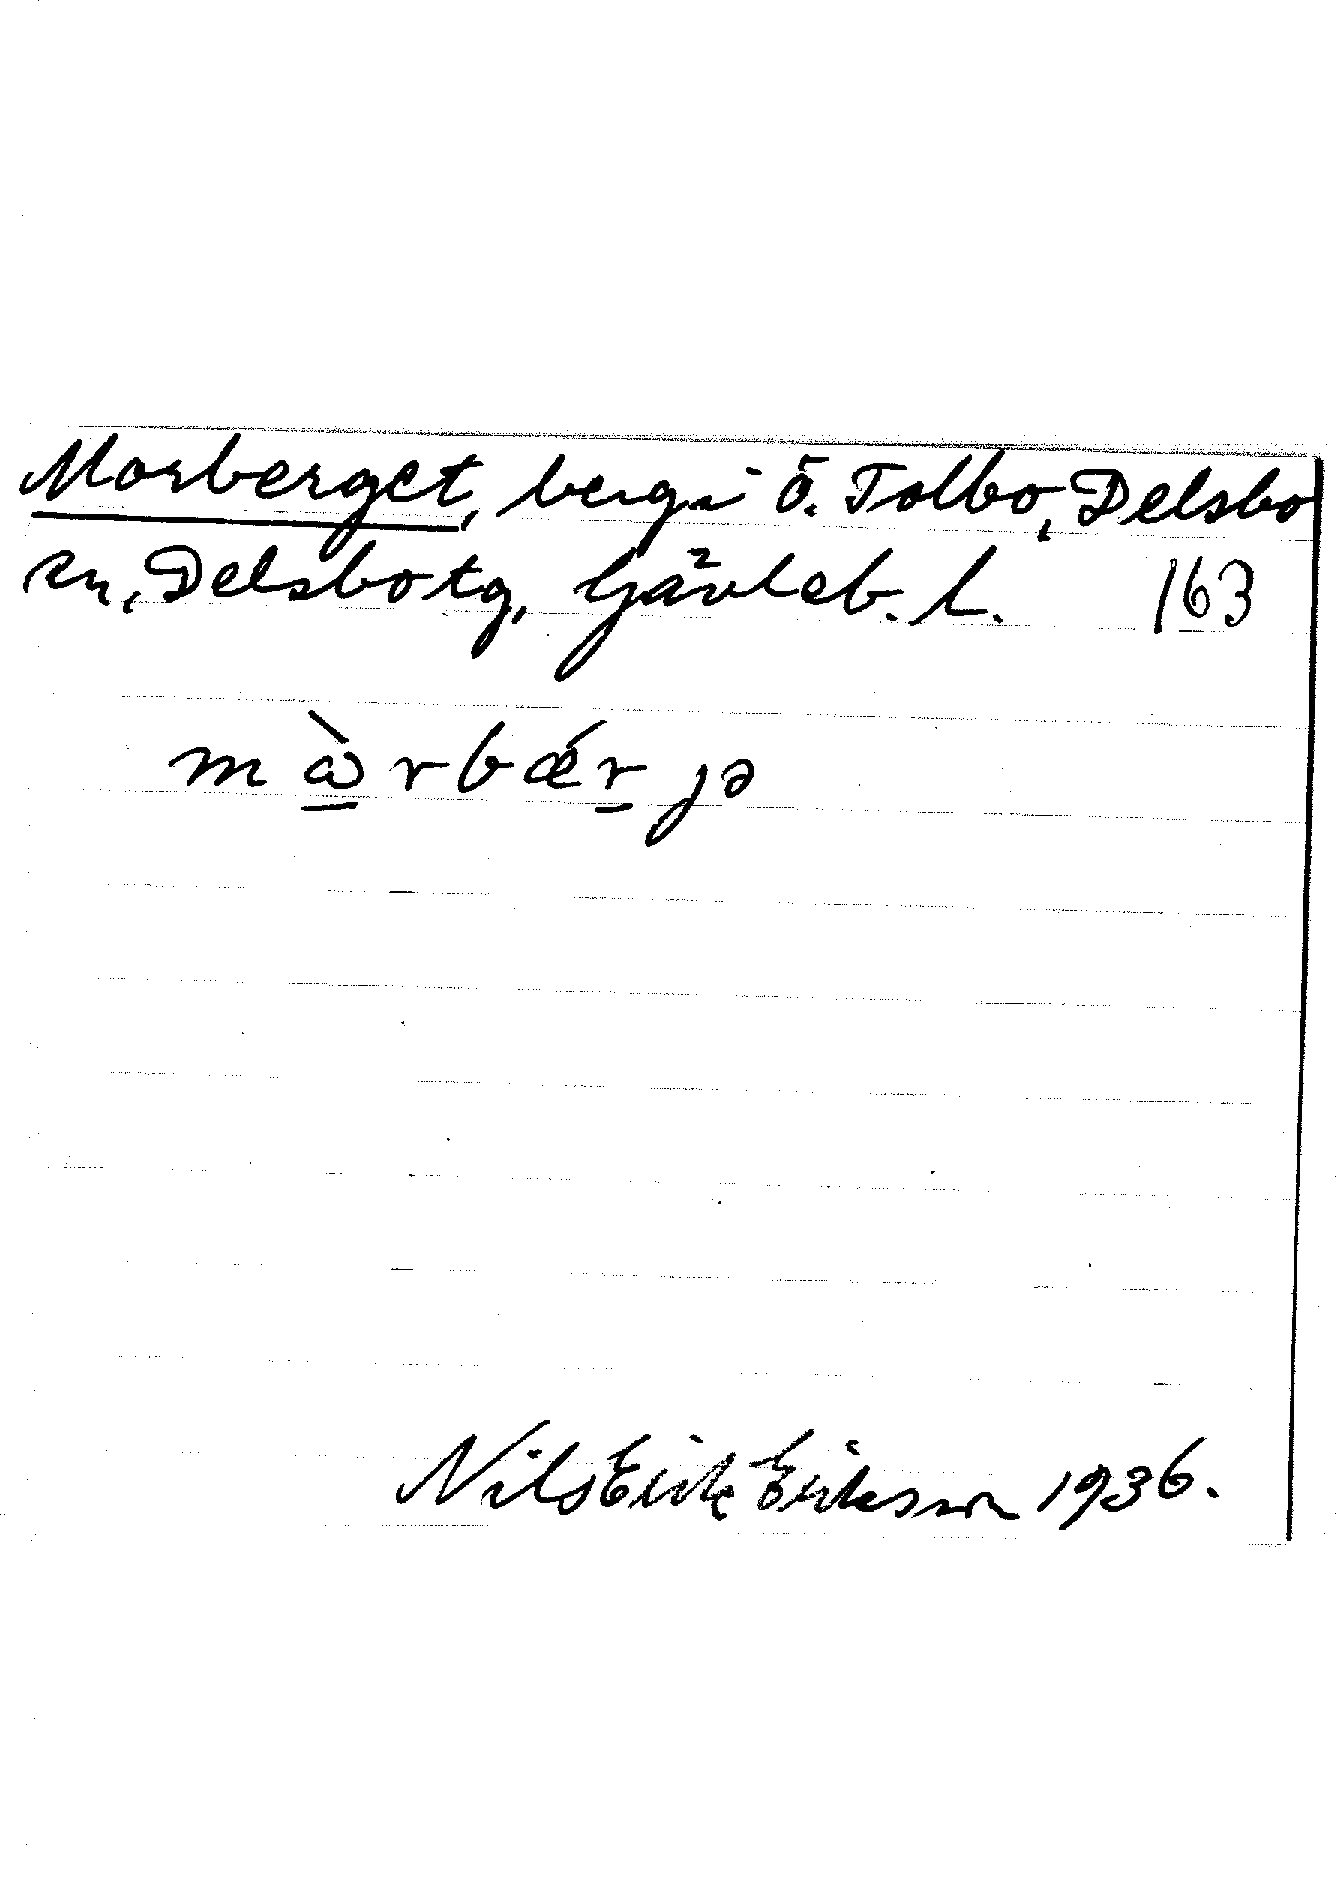 Morberget, berg i Ö. Tolbo, Delsbo
sn, Delsbo tg, Gävleb. l. 163
mὼrbǽrjə
Nils Erik Eriksson 1936.